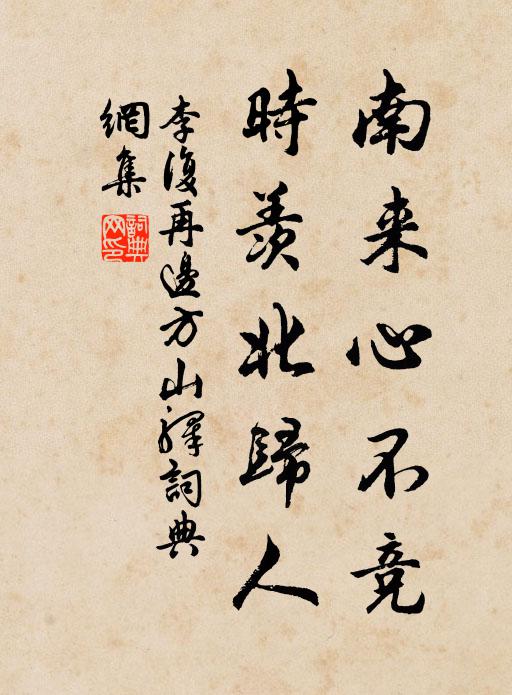 南来心不竞
時羡北歸人
李復再過方山驛詞典
網集
詞典网印